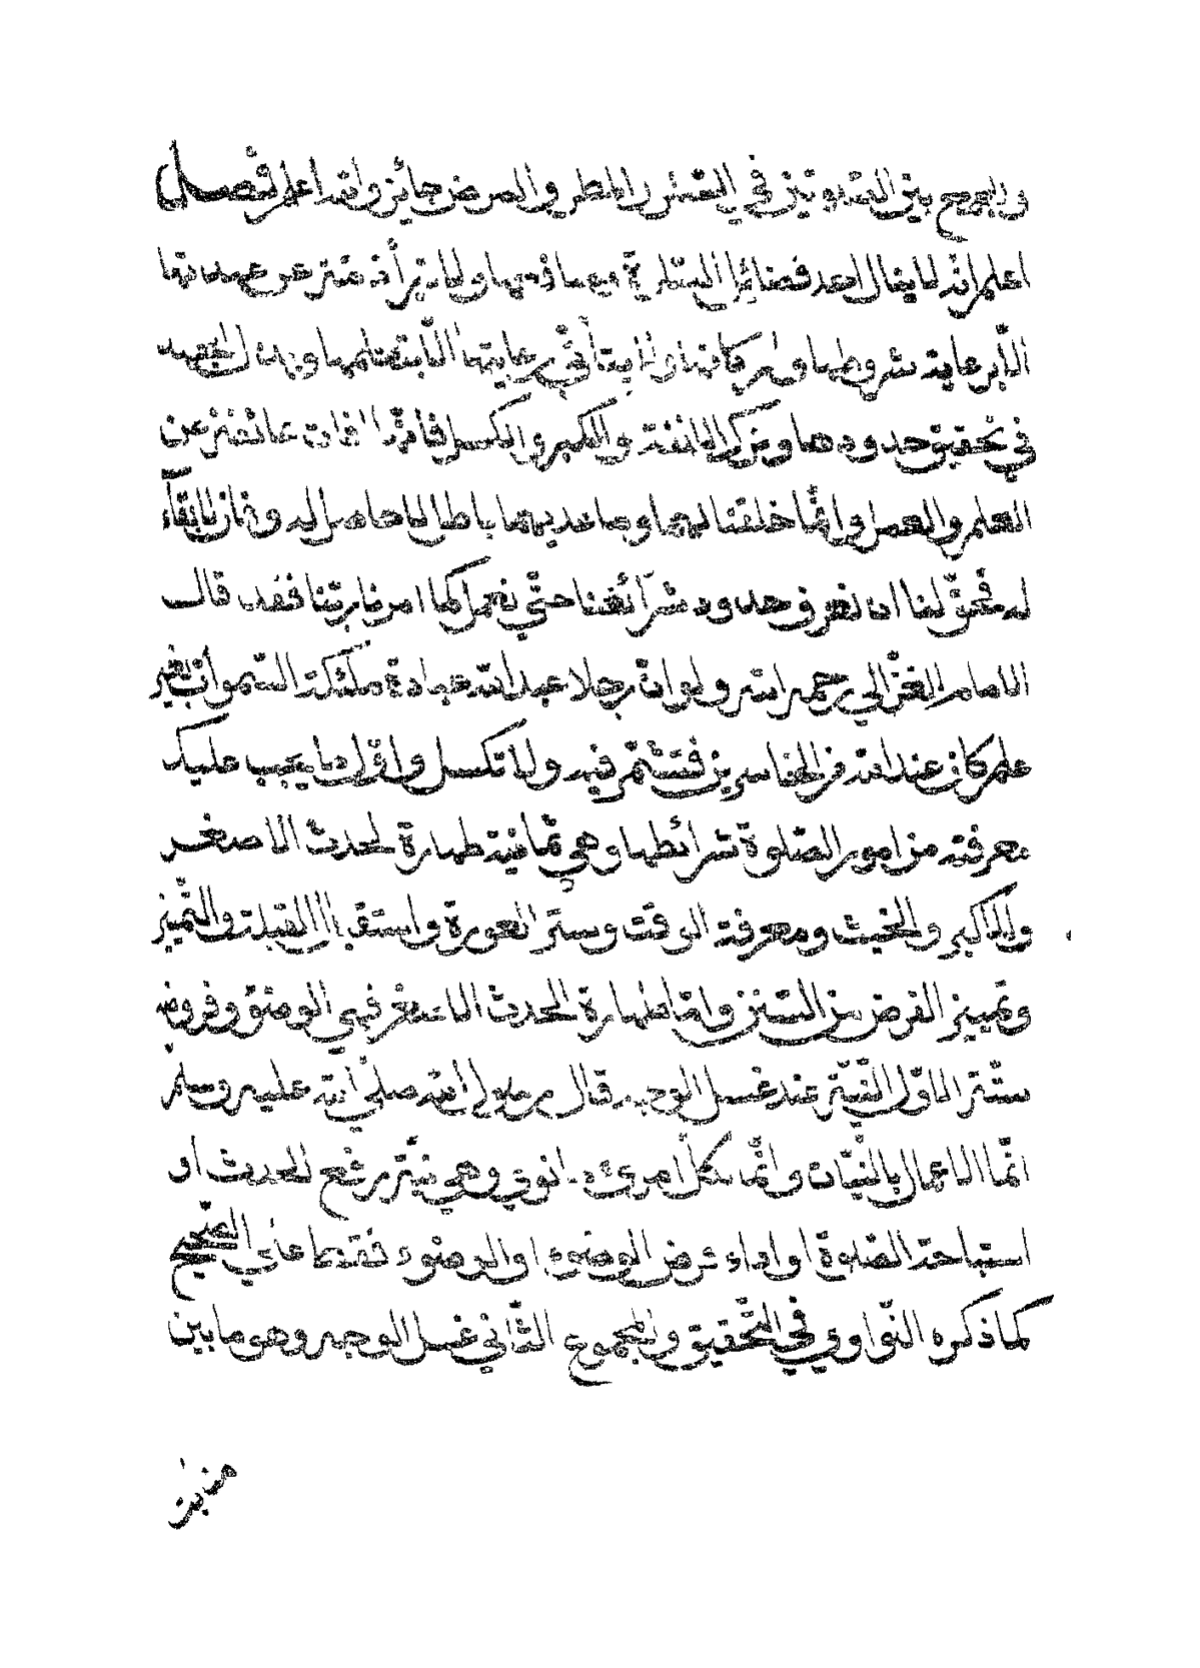 والجمع بين الصلوتين في السفر والمطر والمرض جائز والله اعلم فصل
اعلم انه لا ينال احد فضائل الصلوة معها فيها ولا تبرأ ذمته عن عهداتها
الا برعاية شروطها واركانها ولا يتأتى رعايتها الا بتعلمها وبذل الجهد
في تحقيق حدودها وترك الانفة والكبر والكسل فانها افات عائقة عن
العلم والعمل وانما خلقنا لهما وما عديهما باطل لا حاصل له وفان لا بقاء
له فحق لنا ان نعرف حدود شرآئعنا حتى نعمل كما امرنا ربنا فقد قال
الامام الغزالي رحمه الله ولو ان رجلا عبد الله عبادة ملئكة السموات بغير
علم كان عند الله من الخاسرين فتشمر فيه ولا تكسل واول ما يجب عليك
معرفته من امور الصلوة شرائطها وهي ثمانية طهارة لحدث الاصغر
والاكبر والخبث ومعرفة الوقت وستر العورة واستقبال القبلة والتميز
وتمييز الفرض من السنن واما طهارة الحدث الاصغر فهي الوضوء وفروضه
ستة الاول النية عند غسل الوجه قال رسول الله صلى الله عليه وسلم
انما الاعمال بالنيات وانما لكل امرئ ما نوى وهي نية رفع الحدث او
استباحة الصلوة او اداء فرض الوضوء او الوضوء فقط على الصحيح
كما ذكره النواوي في التحقيق والمجموع الثاني غسل الوجه وهو ما بين